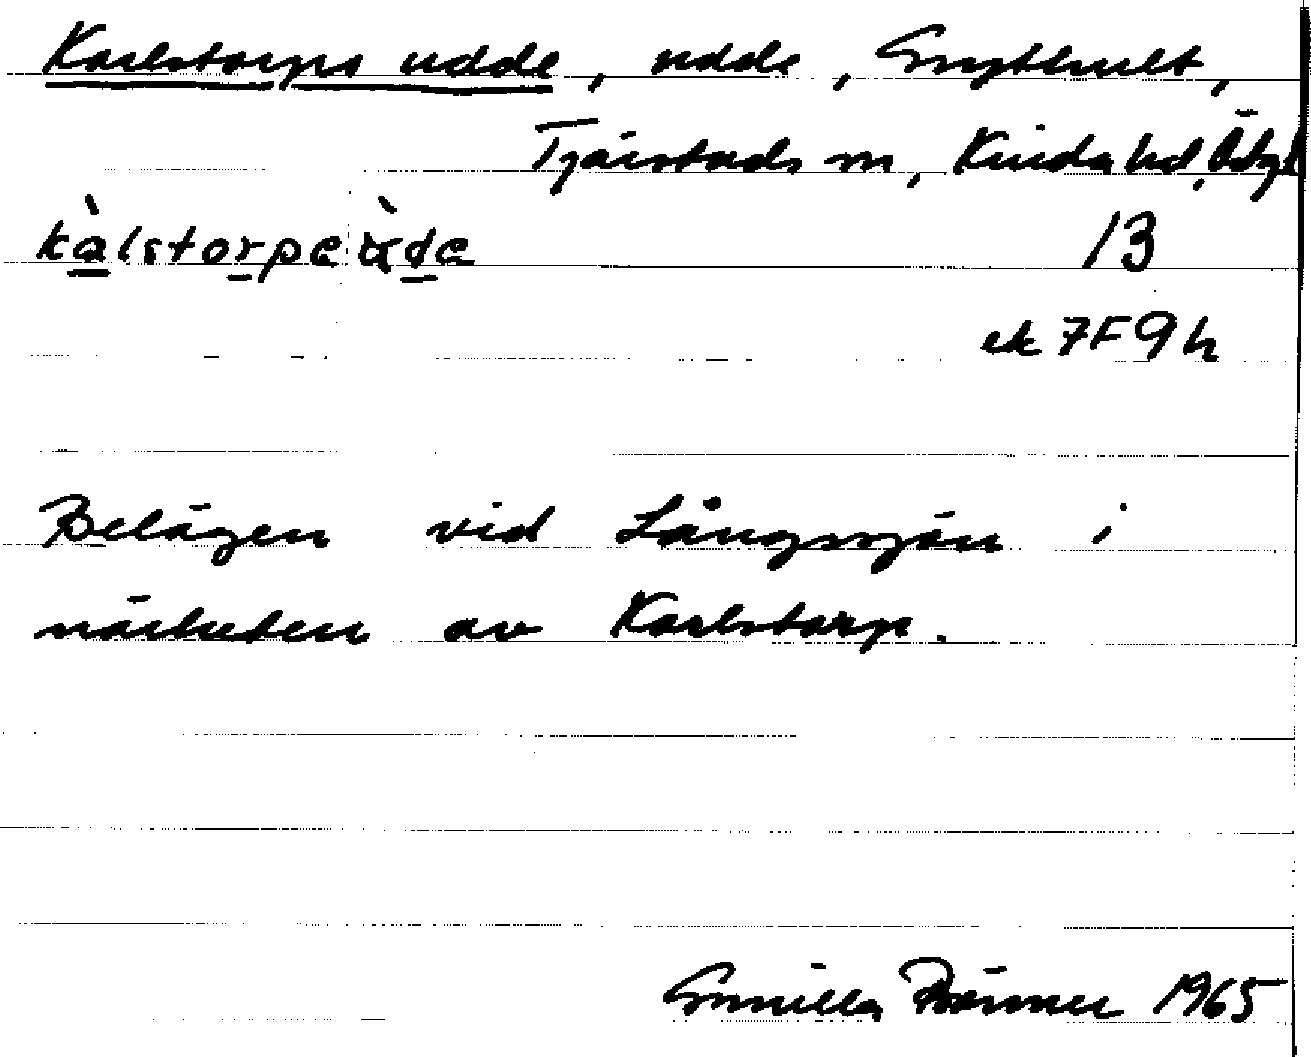 Karlstorps udde, udde, Grythult,
Tjärstads sn, Kinda hd, Östgl
kàlstorpeùde
13
ek 7F9h
Belägen vid Långsjön i
närheten av Karlstorp.
Gunilla 1965